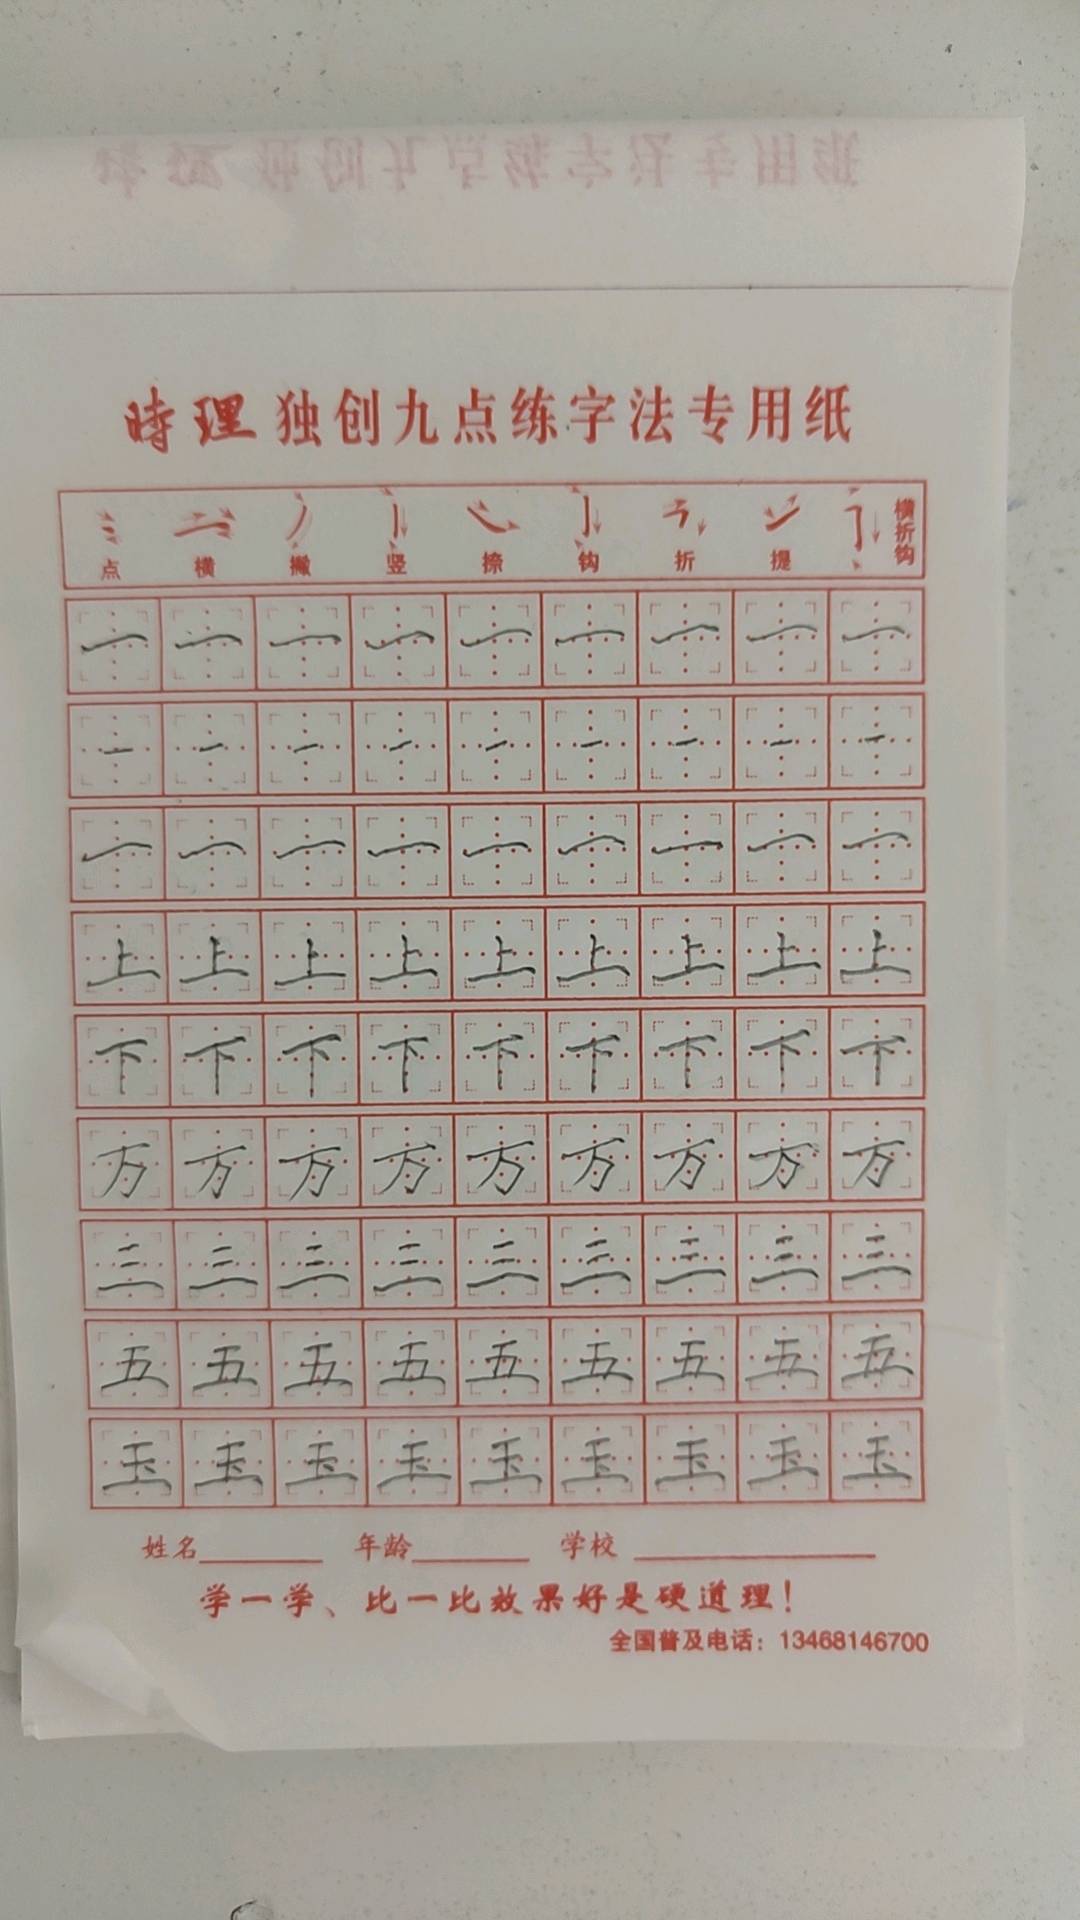 時理 独创九点练字法专用纸
点 横 撇 竖 捺 钩 折 提 横折钩
一 一 一 一 一 一 一 一 一
一 一 一 一 一 一 一 一 一
一 一 一 一 一 一 一 一 一
上 上 上 上 上 上 上 上 上
下 下 下 下 下 下 下 下 下
方 方 方 方 方 方 方 方 方
三 三 三 三 三 三 三 三 三
五 五 五 五 五 五 五 五 五
玉 玉 玉 玉 玉 玉 玉 玉 玉
姓名 年龄 学校
学一学、比一比效果好是硬道理!
全国普及电话:13468146700